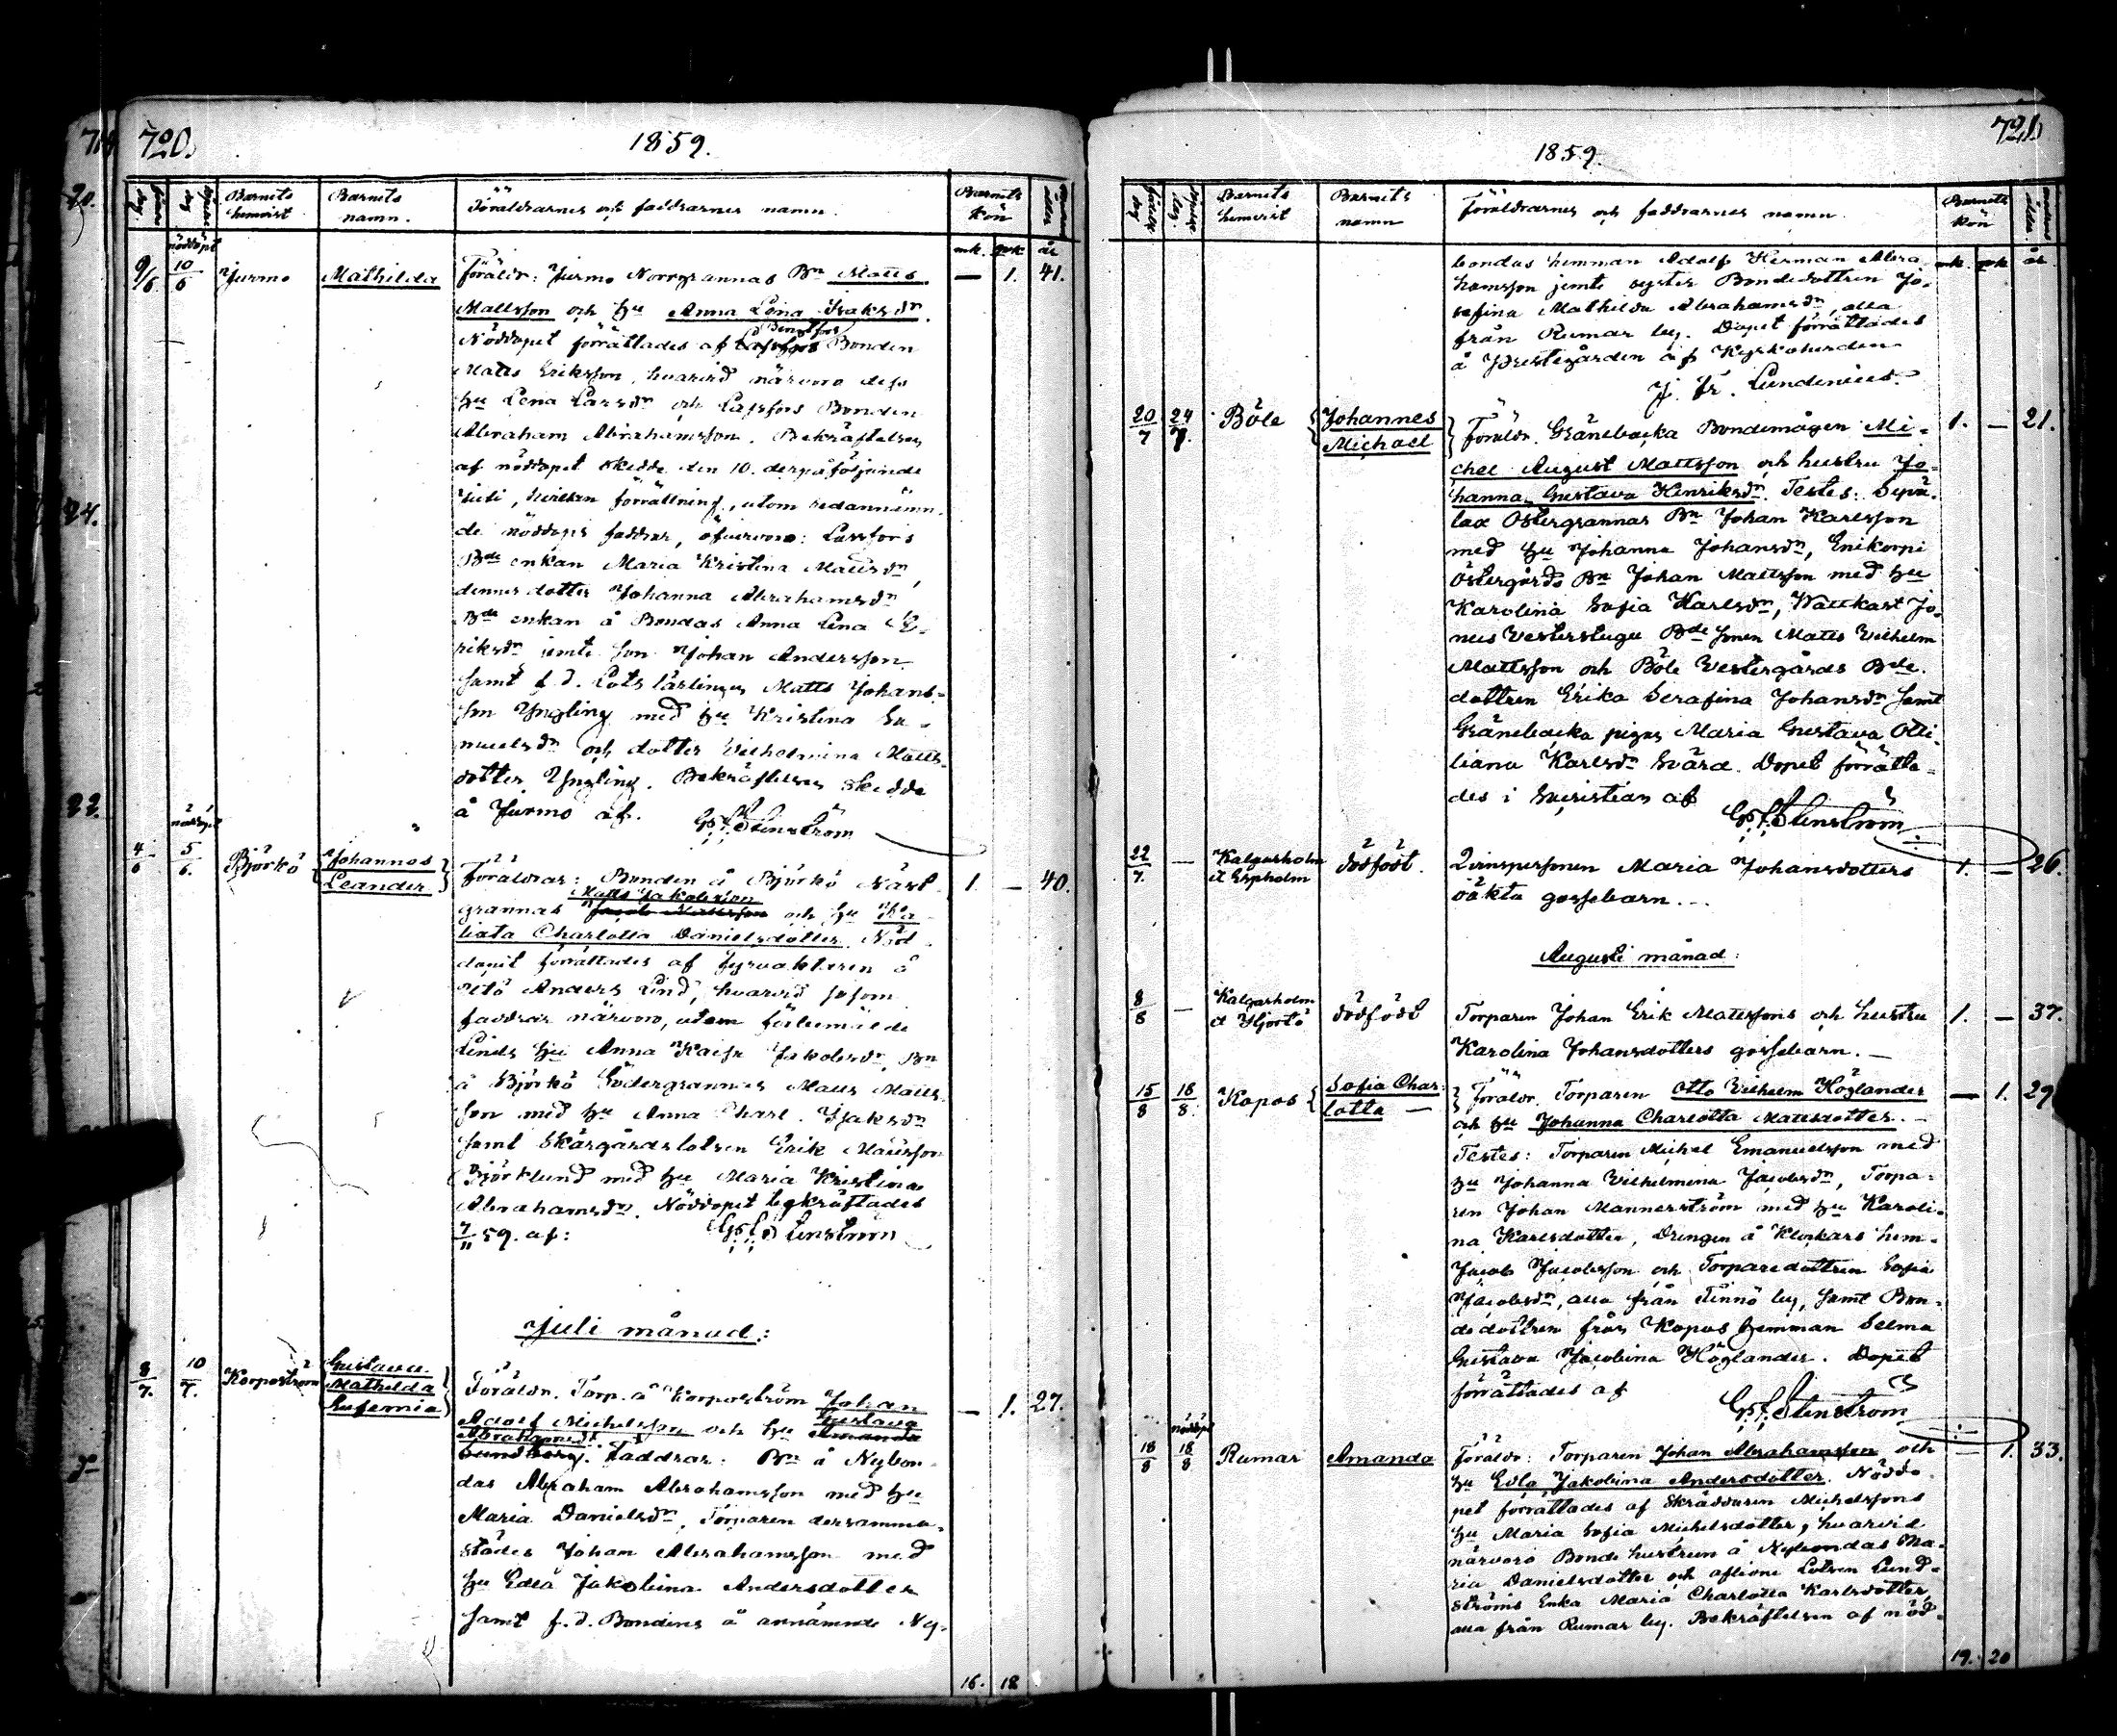 720.
1859.
Födelse dag
Döpelse dag
Barnets hemvist
Barnets namn.
Föräldrarnes och faddrarnes namn.
Barnets kön
mk. qvk. år
9/6. nöddöpt 10/6 Jurmo Mathilda Föräldr: Jurmo Norrgrannas Bn Matts — 1. 41.
Mattsson och hu Anna Lena Isaksdr.
Nöddopet förrättades af Bonden
Matts Eriksson, hvarvid närvoro dess
hu Lena Larsdr och Lassfors Bonden
Abraham Abrahamsson. Bekräftelsen
af nöddopet skedde den 10. derpåföljande
Juli, hvilken förrättning, utom redannämn-
de nöddops faddrar, öfvervoro: Lassfors
Bde enkan Maria Kristina Mattsdr,
dennes dotter Johanna Abrahamsdr
Bde enkan å Bondas Anna Lena E-
riksdr jemte son Johan Andersson
samt f.d. Lots lärlingen Matts Johans-
son Yngling med hu Kristina Sa-
muelsdr och dotter Vilhelmina Matts-
dotter Yngling. Bekräftelsen skedde
å Jurmo af. G. F. Stenström
4/6 nöddöpt 5/6. Björkö Johannes Leander Föräldrar: Bonden å Björkö Näst- 1. — 40.
Matts Jakobsson
grannas Jacob Mattsson och hu Ka-
liata Charlotta Danielsdotter. Nöd-
dopet förrättades af fyrvaktaren å
Utö Anders Lind, hvarvid såsom
faddrar närvoro, utom förbemälde
Linds hu Anna Kaisa Jakobsdr, Bn
å Björkö Södergrannas Matts Matts-
son med hu Anna Charl. Isaksdr
samt Skärgårdslotsen Erik Mattsson
Björklund med hu Maria Kristina
Abrahamsdr. Nöddopet bekräftades
7/11 59. af: G. F. Stenström
Juli månad:
8/7. 10/7. Korpoström Gustava Mathilda Eufemia Föräldr. Torp. å Korpoström Johan — 1. 27.
Adolf Michelsson och hu Gustava Amanda
Abrahamsdr
Lundberg. Faddrar: Bn å Nybon-
das Abraham Abrahamsson med hu
Maria Danielsdr, Torparen dersamma-
städes Johan Abrahamsson med
hu Edla Jakobina Andersdotter
samt f.d. Bondens å annämnde Ny-
16. 18
721.
1859.
Födelse dag
Döpelse dag.
Barnets hemvist
Barnets namn
Föräldrarnes och faddrarnes namn.
Barnets kön
mk. qvk. år
bondas hemman Adolf Herman Abra-
hamsson jemte syster Bondedottren Jo-
sefina Mathilda Abrahamsdr, alla
från Rumar by. Dopet förrättades
å Prestegården af Kyrkoherden
J. Fr. Lundenius.
20/7 24/7. Böle Johannes Michael Föräldr. Gränebacka Bondemågen Mi- 1. — 21.
chel August Mattsson och hustru Jo-
hanna Gustava Henriksdr. Testes: Sepä-
lax Östergrannas Bn Johan Karlsson
med hu Johanna Johansdr, Enikorpi
Östergårds Bn Johan Mattsson med hu
Karolina Sofia Karlsdr, Wattkast Jo-
neis Vesterstugu Bde sonen Matts Vilhelm
Mattsson och Böle Vestergårds Bde-
dottren Erika Serafina Johansdr samt
Gränebacka pigan Maria Gustava Otti-
liana Karlsdr Svärd. Dopet förrätta-
des i Sacristian af G. F. Stenström
22/7. — Kalgarholm et Espholm dödfödt. Qvinspersonen Maria Johansdotters 1. — 26.
oäkta gossebarn.
Augusti månad:
8/8 — Kalgarholm et Hjortö dödfödt Torparen Johan Erik Mattssons och hustru 1. — 37.
Karolina Johansdotters gossebarn. —
15/8 18/8. Kopos Sofia Charlotta — Föräldr. Torparen Otto Vilhelm Höglander — 1. 29
och hu Johanna Charlotta Mattsdotter. —
Testes: Torparen Michel Emanuelsson med
hu Johanna Vilhelmina Jacobsdr, Torpa-
ren Johan Mannerström med hu Karoli-
na Karlsdotter, Drengen å Klockars hem-
Jacob Jacobsson och Torparedottren Sofia
Jacobsdr, alla från Finnö by, samt Bon-
dedottren från Kopos hemman Selma
Gustava Jacobina Höglander. Dopet
förrättades af G. F. Stenström
18/8 nöddöpt 18/8 Rumar Amanda Föräldr: Torparen Johan Abrahamsson och — 1. 33.
hu Edla Jakobina Andersdotter. Nöddo-
pet förrättades af Skräddaren Michelssons
hu Maria Sofia Michelsdotter, hvarvid
närvoro Bonde hustrun å Nybondas Ma-
ria Danielsdotter och aflidne Lotsen Lund-
ströms Enka Maria Charlotta Karlsdotter,
alla från Rumar by. Bekräftelsen af nöd-
19. 20